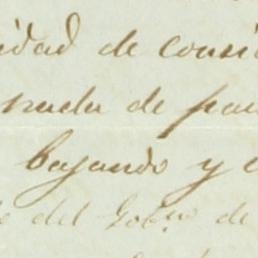 idad de consi
nada de pa
bajando y c
del Gobno de